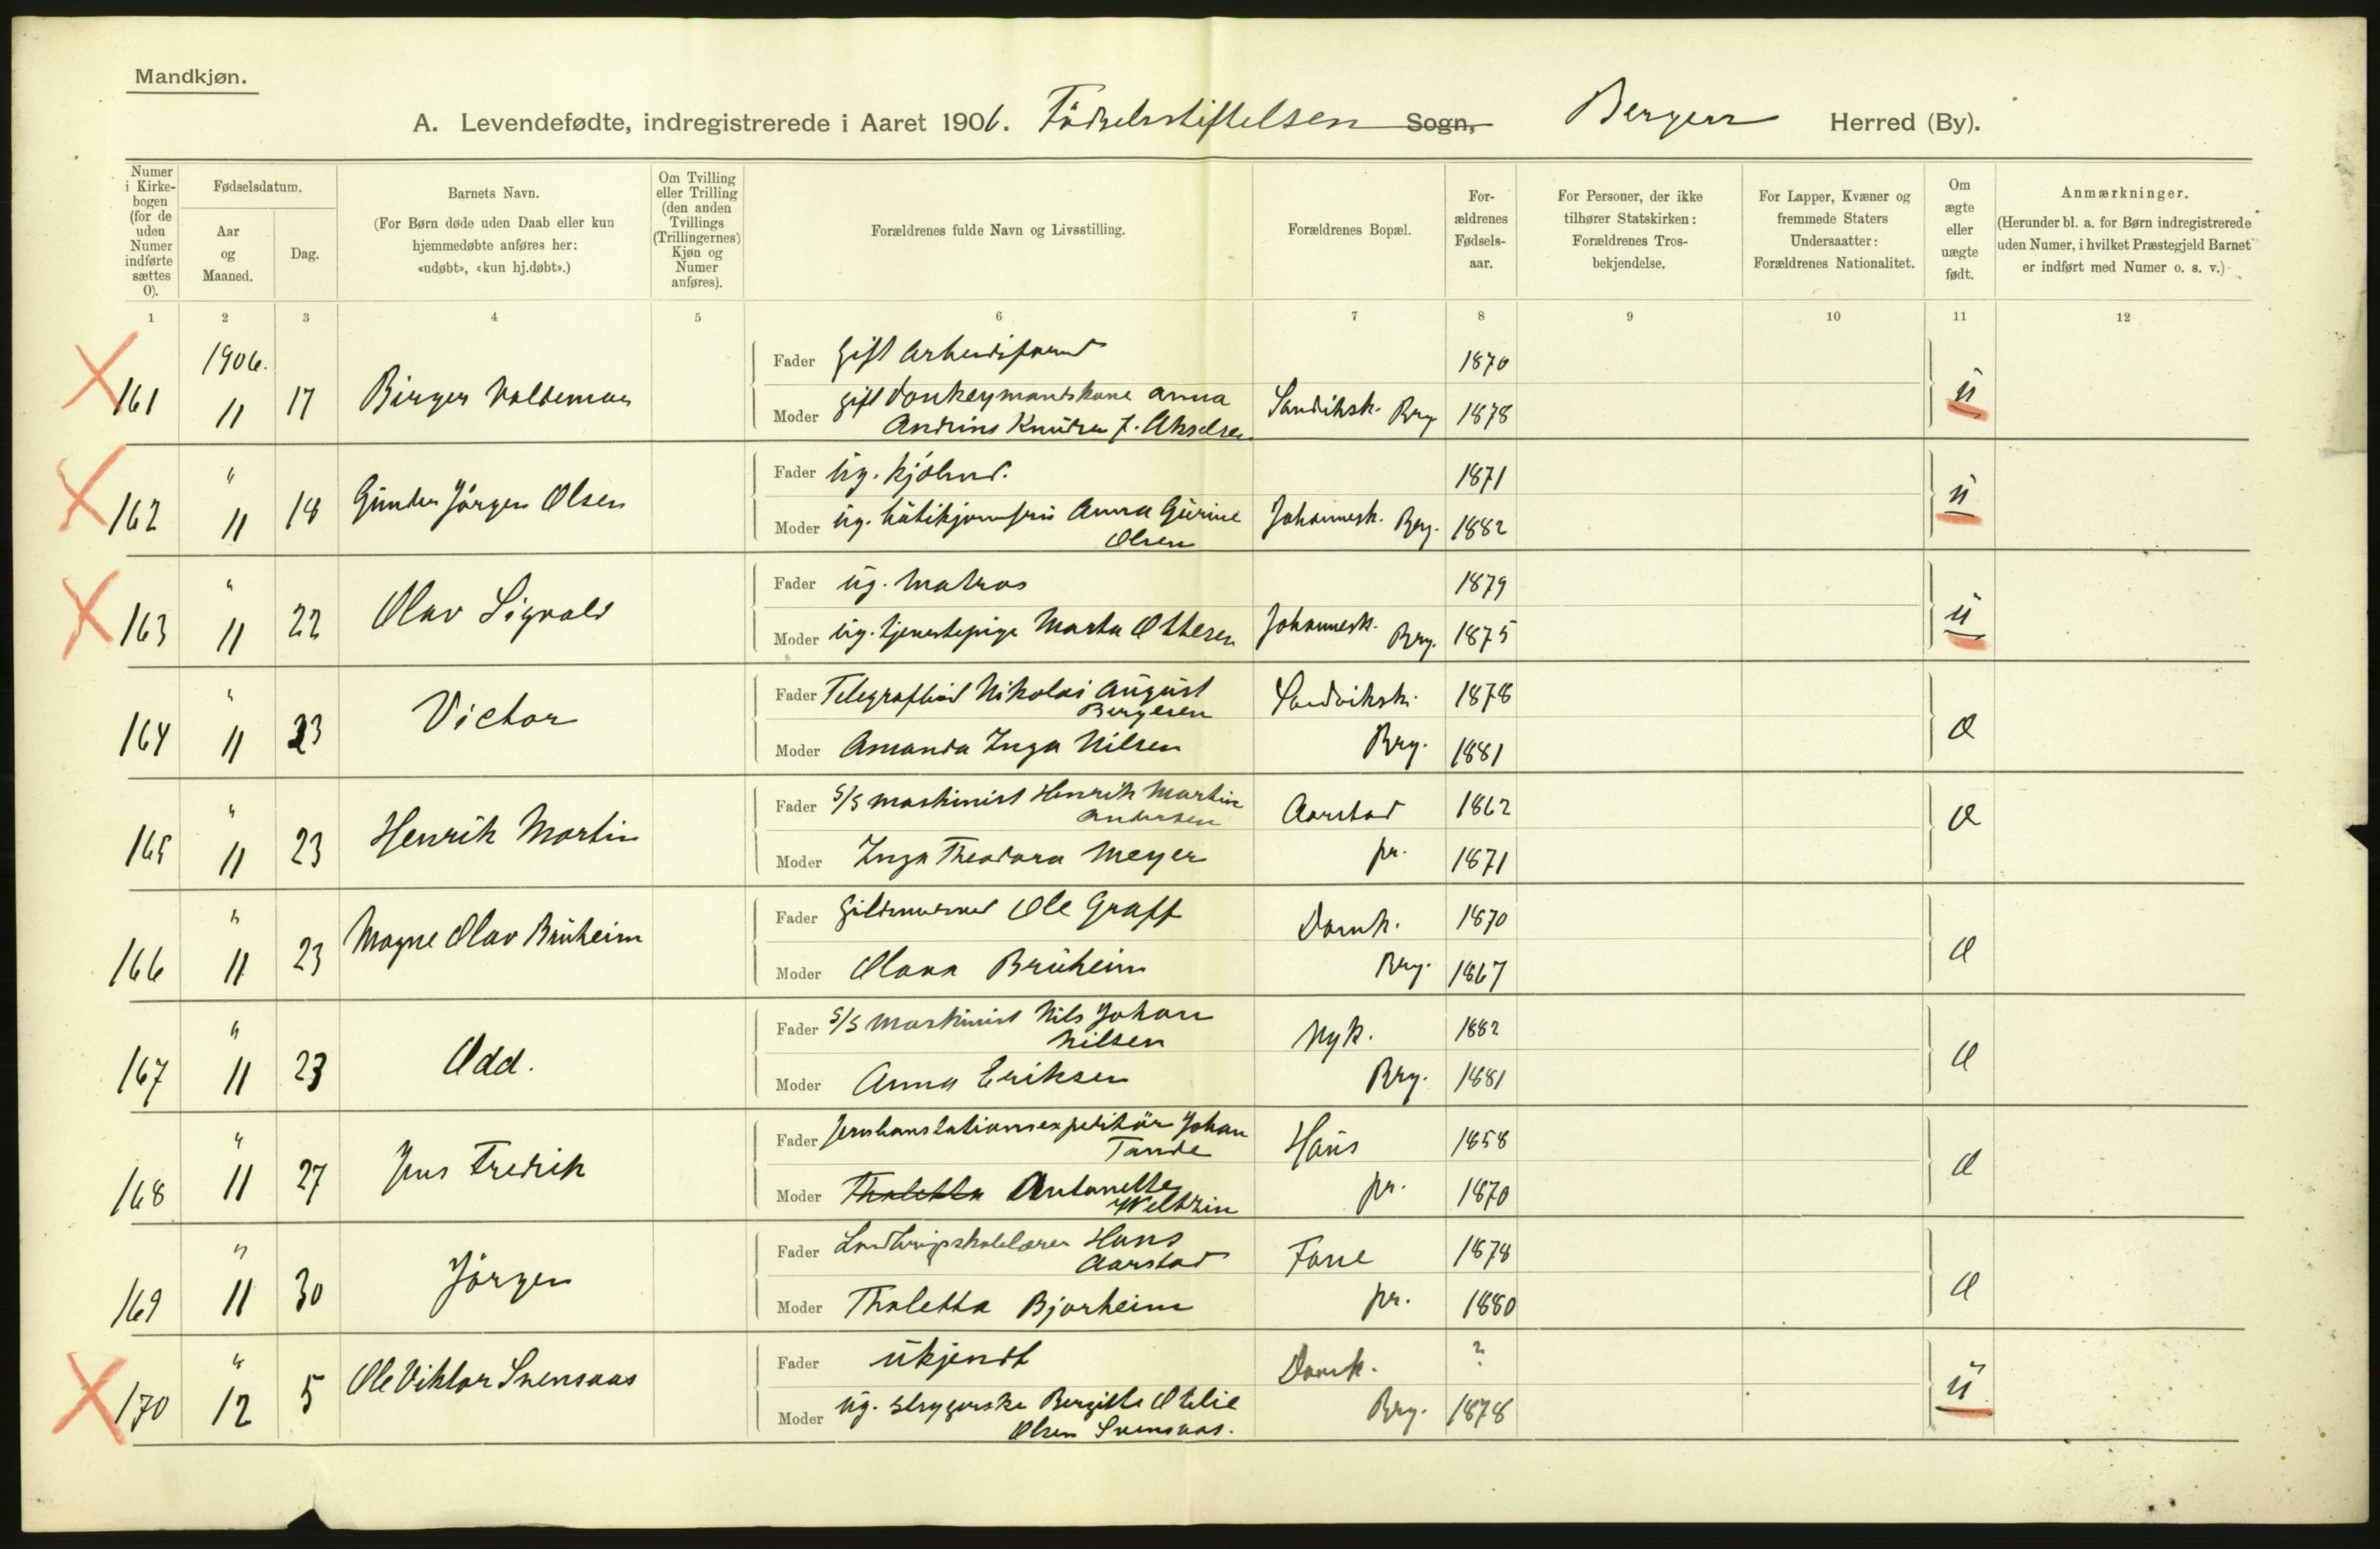 Mandkjøn.
A. Levendefødte, indregistrerede i Aaret 1906. Födselsstiftelsen Sogn, Bergen Herred (By).
Numer i Kirkebogen (for de uden Numer indførte sættes 0).
Fødselsdatum.
Aar og Maaned.
Dag.
Barnets Navn.
(For Børn døde uden Daab eller kun hjemmedøbte anføres her: «udøbt», «kun hj.døbt».)
Om Tvilling eller Trilling (den anden Tvillings (Trillingernes) Kjøn og Numer anføres).
Forældrenes fulde Navn og Livsstilling.
Forældrenes Bopæl.
For-ældrenes Fødsels-aar.
For Personer, der ikke tilhører Statskirken: Forældrenes Tros-bekjendelse.
For Lapper, Kvæner og fremmede Staters Undersaatter: Forældrenes Nationalitet.
Om ægte eller uægte født.
Anmærkninger.
(Herunder bl. a. for Børn indregistrerede uden Numer, i hvilket Præstegjeld Barnet er indført med Numer o. s. v.)
1 2 3 4 5 6 7 8 9 10 11 12
1906.
161 11 17 Birger Valdemar
Fader Gift Arbeidsformd 1870
Moder gift Donkeymandskone Anna Andrine Knudsen f. Akselsen Sandviksk. Brg. 1878 ü
162 " 11 18 Gunder Jörgen Olsen
Fader üg. kjöbmd. 1871
Moder üg. bütikjomfrü Anna Gürine Olsen Johannesk. Brg. 1882 ü
163 " 11 22 Olav Sigvald
Fader üg. Matros 1879
Moder üg. tjenestepige Marta Ottesen Johannesk. Brg. 1875 ü
164 " 11 23 Victor
Fader Telegrafbüd Nikolai Aügüst Bergesen Sandviksk. 1878
Moder Amanda Inga Nilsen Brg. 1881 Æ
165 " 11 23 Henrik Martin
Fader S/S Maskinist Henrik Martin Andersen Aarstad 1862
Moder Inga Theodora Meyer pr. 1871 Æ
166 " 11 23 Magne Olav Brüheim
Fader Güldsmedmd Ole Graff Domk. 1870
Moder Olava Brüheim Brg. 1867 Æ
167 " 11 23 Odd.
Fader S/S Maskinist Nils Johan Nilsen Nyk. 1882
Moder Anna Eriksen Brg. 1881 Æ
168 " 11 27 Jens Fredrik
Fader Jernbanestationsexpeditör Johan Tande Haüs 1858
Moder Thaletta Antonette Weltzin pr. 1870 Æ
169 " 11 30 Jörgen
Fader Landbrügsskolelærer Hans Aarstad Fane 1878
Moder Thaletta Bjorheim pr. 1880 Æ
170 " 12 5 Ole Viktor Svensaas
Fader ükjendt Domk. ?
Moder üg. strygerske Bergitte Otelie Olsen Svensaas. Brg. 1878 ü